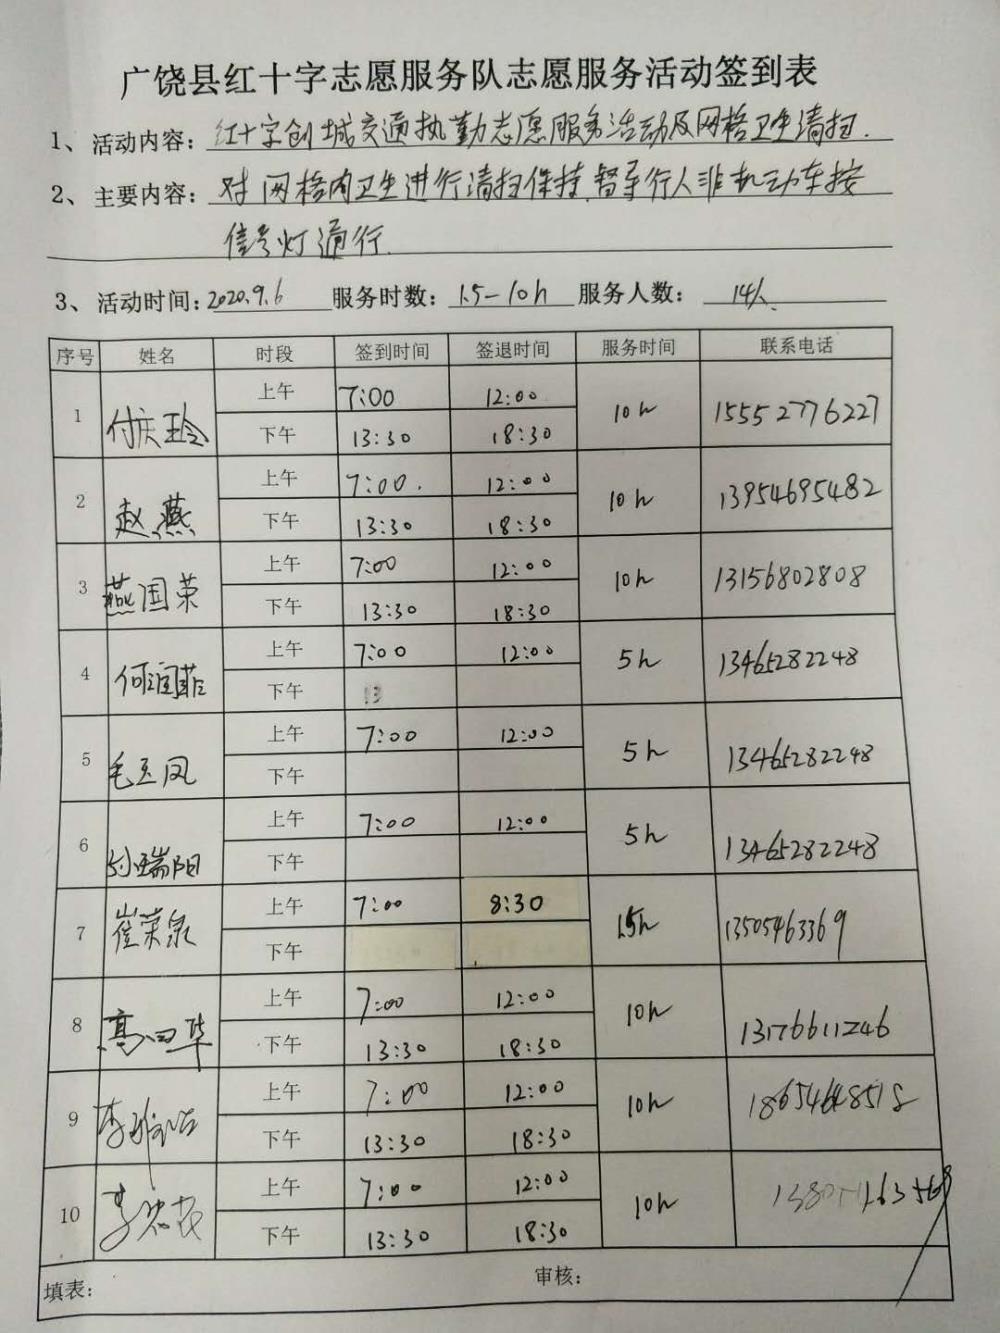 广饶县红十字志愿服务队志愿服务活动签到表
1、活动内容：红十字创城交通执勤志愿服务活动及网格卫生清扫.
2、主要内容：对网格内卫生进行清扫保持,督导行人非机动车按
信号灯通行.
3、活动时间：2020.9.6 服务时数：1.5-10h 服务人数：14人.
序号 姓名 时段 签到时间 签退时间 服务时间 联系电话
1 付庆玲 上午 7:00 12:00 10h 15552776227
下午 13:30 18:30
2 赵燕 上午 7:00. 12:00 10h 13954695482
下午 13:30 18:30
3 燕国荣 上午 7:00 12:00 10h 13156802808
下午 13:30 18:30
4 何润菲 上午 7:00 12:00 5h 13465282248
下午 13
5 毛玉凤 上午 7:00 12:00 5h 13465282248
下午
6 瑞阳 上午 7:00 12:00 5h 13465282248
下午
7 崔荣泉 上午 7:00 8:30 1.5h 13505463369
下午
8 高四华 上午 7:00 12:00 10h 13176611246
下午 13:30 18:30
9 李 上午 7:00 12:00 10h 18654648518
下午 13:30 18:30
10 李 上午 7:00 12:00 10h
下午 13:30 18:30
填表： 审核：